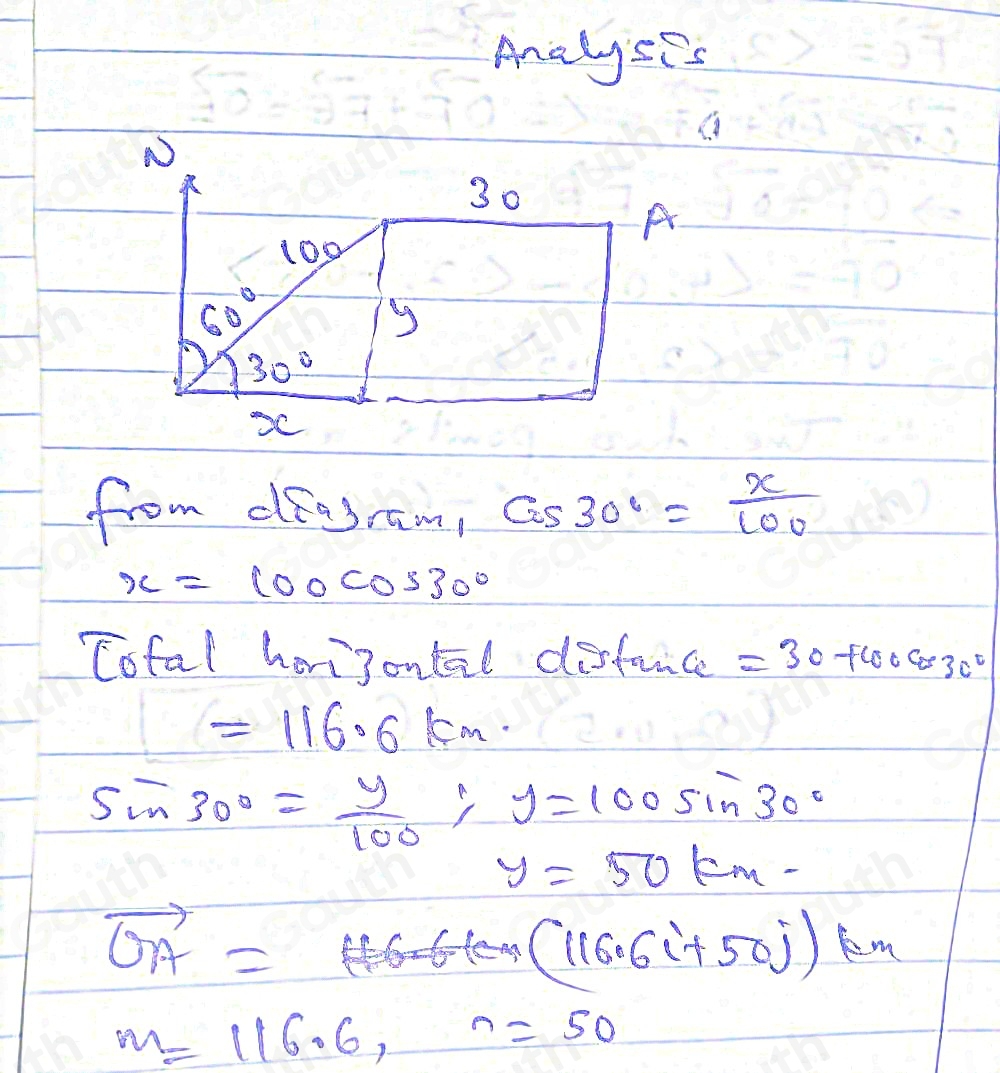 Analysis
N
30
A
100
60°
y
30°
x
from diagram, Cos30° = x/100
x = 100cos30°
Total horizontal distance = 30+100cos30°
= 116.6 km.
Sin 30° = y/100 ; y=100sin30°
y = 50 km -
OA = (116.6i+50j) km
m= 116.6, n= 50